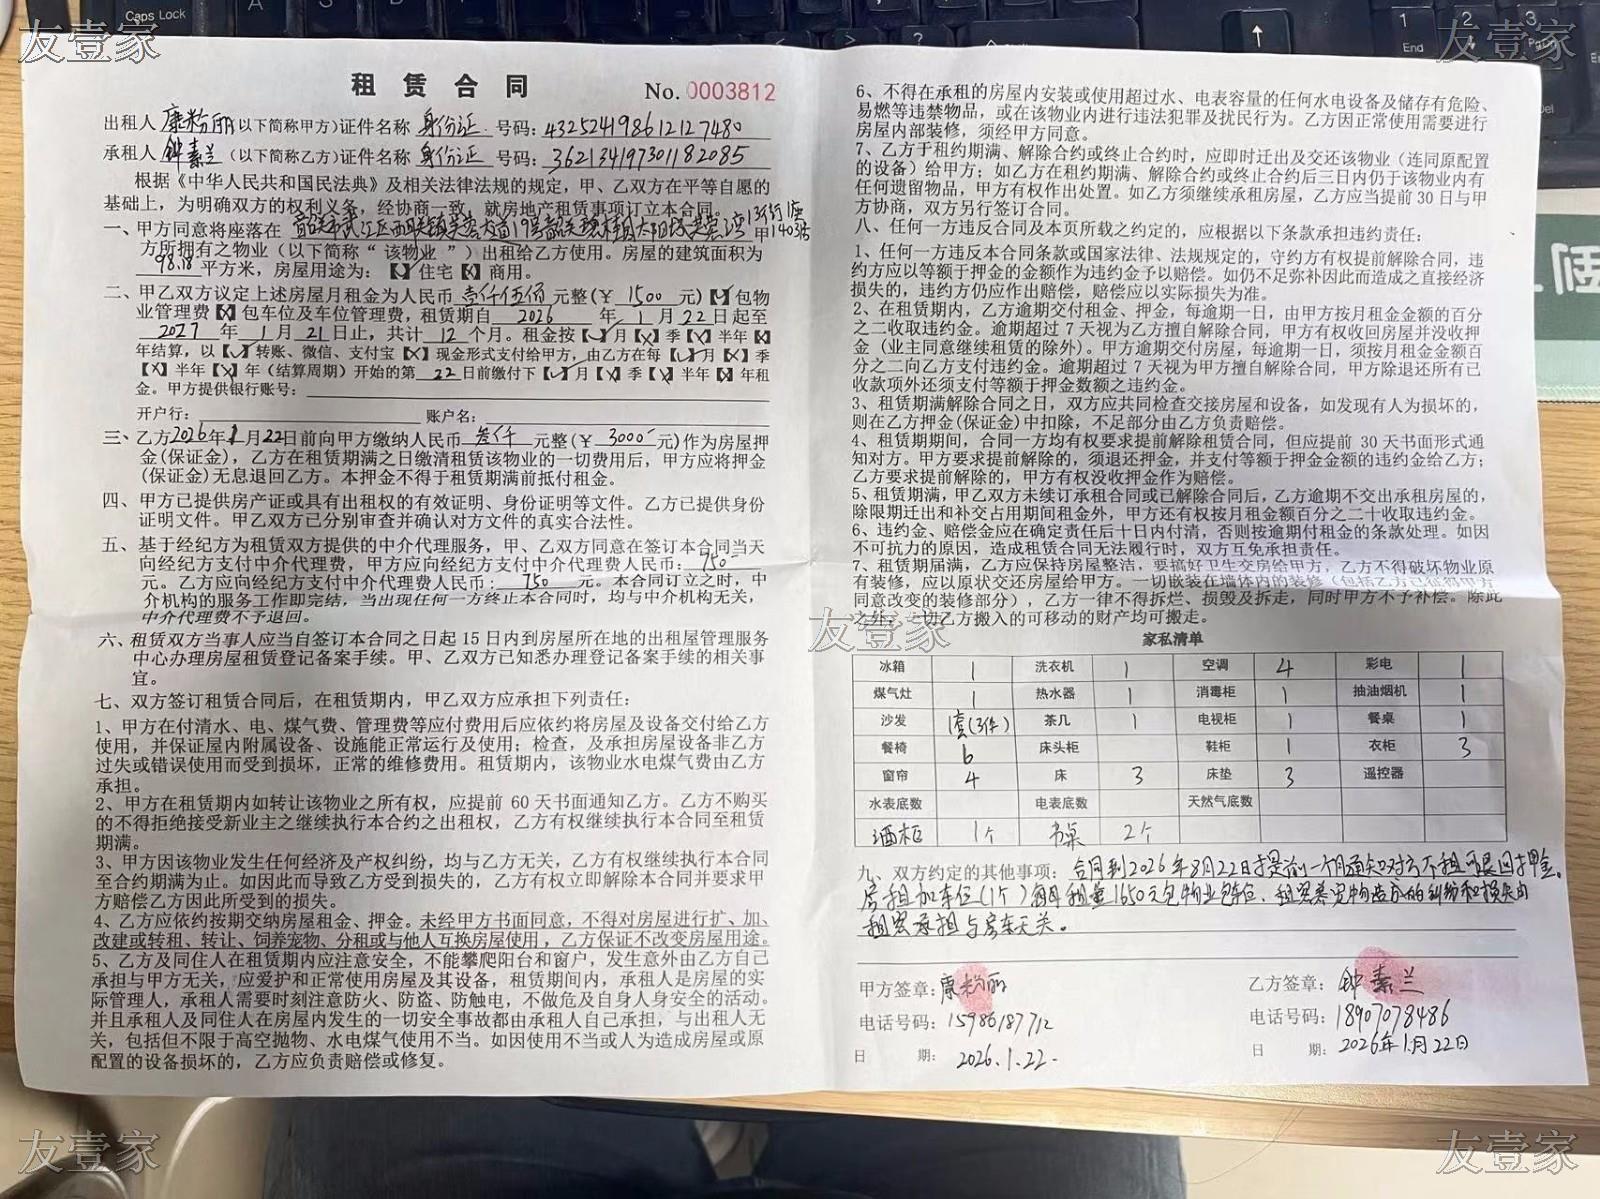 友壹家
友壹家
Caps Lock
A
S
D
?
↑
1
End
2
3
PgDn
Del
租 赁 合 同
No. 0003812
出租人 康粉丽 (以下简称甲方)证件名称 身份证 号码: 432524198612127480
承租人 钟素兰 (以下简称乙方)证件名称 身份证 号码: 362134197301182085
根据《中华人民共和国民法典》及相关法律法规的规定，甲、乙双方在平等自愿的
基础上，为明确双方的权利义务，经协商一致，就房地产租赁事项订立本合同。
一、甲方同意将座落在 韶关市武江区西联镇芙蓉大道19号韶关碧桂园太阳城芙蓉 13街1座 甲1403房
方所拥有之物业（以下简称“ 该物业 ”）出租给乙方使用。房屋的建筑面积为
98.18 平方米，房屋用途为：【✓】住宅【X】商用。
二、甲乙双方议定上述房屋月租金为人民币 壹仟伍佰 元整(￥ 1500 元)【✓】包物
业管理费【X】包车位及车位管理费，租赁期自 2026 年 1 月 22 日起至
2027 年 1 月 21 日止，共计 12 个月。租金按【✓】月【X】季【X】半年【X】
年结算，以【✓】转账、微信、支付宝【X】现金形式支付给甲方，由乙方在每【✓】月【X】季
【X】半年【X】年（结算周期）开始的第 22 日前缴付下【✓】月【X】季【X】半年【X】年租
金。甲方提供银行账号：
开户行： 账户名：
三、乙方2026年1月22日前向甲方缴纳人民币 叁仟 元整(￥ 3000 元)作为房屋押
金(保证金)，乙方在租赁期满之日缴清租赁该物业的一切费用后，甲方应将押金
(保证金)无息退回乙方。本押金不得于租赁期满前抵付租金。
四、甲方已提供房产证或具有出租权的有效证明、身份证明等文件。乙方已提供身份
证明文件。甲乙双方已分别审查并确认对方文件的真实合法性。
五、基于经纪方为租赁双方提供的中介代理服务，甲、乙双方同意在签订本合同当天
向经纪方支付中介代理费，甲方应向经纪方支付中介代理费人民币： 750
元。乙方应向经纪方支付中介代理费人民币： 750 元。本合同订立之时，中
介机构的服务工作即完结，当出现任何一方终止本合同时，均与中介机构无关，
中介代理费不予退回。
六、租赁双方当事人应当自签订本合同之日起 15 日内到房屋所在地的出租屋管理服务
中心办理房屋租赁登记备案手续。甲、乙双方已知悉办理登记备案手续的相关事
宜。
七、双方签订租赁合同后，在租赁期内，甲乙双方应承担下列责任：
1、甲方在付清水、电、煤气费、管理费等应付费用后应依约将房屋及设备交付给乙方
使用，并保证屋内附属设备、设施能正常运行及使用；检查，及承担房屋设备非乙方
过失或错误使用而受到损坏，正常的维修费用。租赁期内，该物业水电煤气费由乙方
承担。
2、甲方在租赁期内如转让该物业之所有权，应提前 60 天书面通知乙方。乙方不购买
的不得拒绝接受新业主之继续执行本合约之出租权，乙方有权继续执行本合同至租赁
期满。
3、甲方因该物业发生任何经济及产权纠纷，均与乙方无关，乙方有权继续执行本合同
至合约期满为止。如因此而导致乙方受到损失的，乙方有权立即解除本合同并要求甲
方赔偿乙方因此所受到的损失。
4、乙方应依约按期交纳房租金、押金。未经甲方书面同意，不得对房屋进行扩、加、
改建或转租、转让、饲养宠物、分租或与他人互换房屋使用，乙方保证不改变房屋用途。
5、乙方及同住人在租赁期内应注意安全，不能攀爬阳台和窗户，发生意外由乙方自己
承担与甲方无关，应爱护和正常使用房屋及其设备，租赁期间内，承租人是房屋的实
际管理人，承租人需要时刻注意防火、防盗、防触电，不做危及自身人身安全的活动。
并且承租人及同住人在房屋内发生的一切安全事故都由承租人自己承担，与出租人无
关，包括但不限于高空抛物、水电煤气使用不当。如因使用不当或人为造成房屋或原
配置的设备损坏的，乙方应负责赔偿或修复。
6、不得在承租的房屋内安装或使用超过水、电表容量的任何水电设备及储存有危险、
易燃等违禁物品，或在该物业内进行违法犯罪及扰民行为。乙方因正常使用需要进行
房屋内部装修，须经甲方同意。
7、乙方于租约期满、解除合约或终止合约时，应即时迁出及交还该物业（连同原配置
的设备）给甲方；如乙方在租约期满、解除合约或终止合约后三日内仍于该物业内有
任何遗留物品，甲方有权作出处置。如乙方须继续承租房屋，乙方应当提前 30 日与甲
方协商，双方另行签订合同。
八、任何一方违反本合同及本页所载之约定的，应根据以下条款承担违约责任：
1、任何一方违反本合同条款或国家法律、法规规定的，守约方有权提前解除合同，违
约方应以等额于押金的金额作为违约金予以赔偿。如仍不足弥补因此而造成之直接经济
损失的，违约方仍应作出赔偿，赔偿应以实际损失为准。
2、在租赁期内，乙方逾期交付租金、押金，每逾期一日，由甲方按月租金金额的百分
之二收取违约金。逾期超过 7 天视为乙方擅自解除合同，甲方有权收回房屋并没收押
金（业主同意继续租赁的除外）。甲方逾期交付房屋，每逾期一日，须按月租金金额百
分之二向乙方支付违约金。逾期超过 7 天视为甲方擅自解除合同，甲方除退还所有已
收款项外还须支付等额于押金数额之违约金。
3、租赁期满解除合同之日，双方应共同检查交接房屋和设备，如发现有人为损坏的，
则在乙方押金(保证金)中扣除，不足部分由乙方负责赔偿。
4、租赁期期间，合同一方均有权要求提前解除租赁合同，但应提前 30 天书面形式通
知对方。甲方要求提前解除的，须退还押金，并支付等额于押金金额的违约金给乙方；
乙方要求提前解除的，甲方有权没收押金作为赔偿。
5、租赁期满，甲乙双方未续订承租合同或已解除合同后，乙方逾期不交出承租房屋的，
除限期迁出和补交占用期间租金外，甲方还有权按月租金额百分之二十收取违约金。
6、违约金、赔偿金应在确定责任后十日内付清，否则按逾期付租金的条款处理。如因
不可抗力的原因，造成租赁合同无法履行时，双方互免承担责任。
7、租赁期届满，乙方应保持房屋整洁，要搞好卫生交房给甲方，乙方不得破坏物业原
有装修，应以原状交还房屋给甲方。一切嵌装在墙体内的装修（包括乙方已征得甲方
同意改变的装修部分），乙方一律不得拆烂、损毁及拆走，同时甲方不予补偿。除此
之外，一切乙方搬入的可移动的财产均可搬走。
友壹家
家私清单
冰箱 1 洗衣机 1 空调 4 彩电 1
煤气灶 1 热水器 1 消毒柜 1 抽油烟机 1
沙发 1套(3件) 茶几 1 电视柜 1 餐桌 1
餐椅 6 床头柜 鞋柜 1 衣柜 3
窗帘 4 床 3 床垫 3 遥控器
水表底数 电表底数 天然气底数
酒柜 1个 书桌 2个
九、双方约定的其他事项： 合同到2026年8月22日才提前一个月通知对方不租可退回押金。
房租加车位(1个)每月租金1650元包物业包车位，租客养宠物造成的纠纷和损失由
租客承担与房东无关。
甲方签章：康粉丽
电话号码：15986187712
日 期： 2026.1.22.
乙方签章： 钟素兰
电话号码：18907078486
日 期： 2026年1月22日
友壹家
友壹家